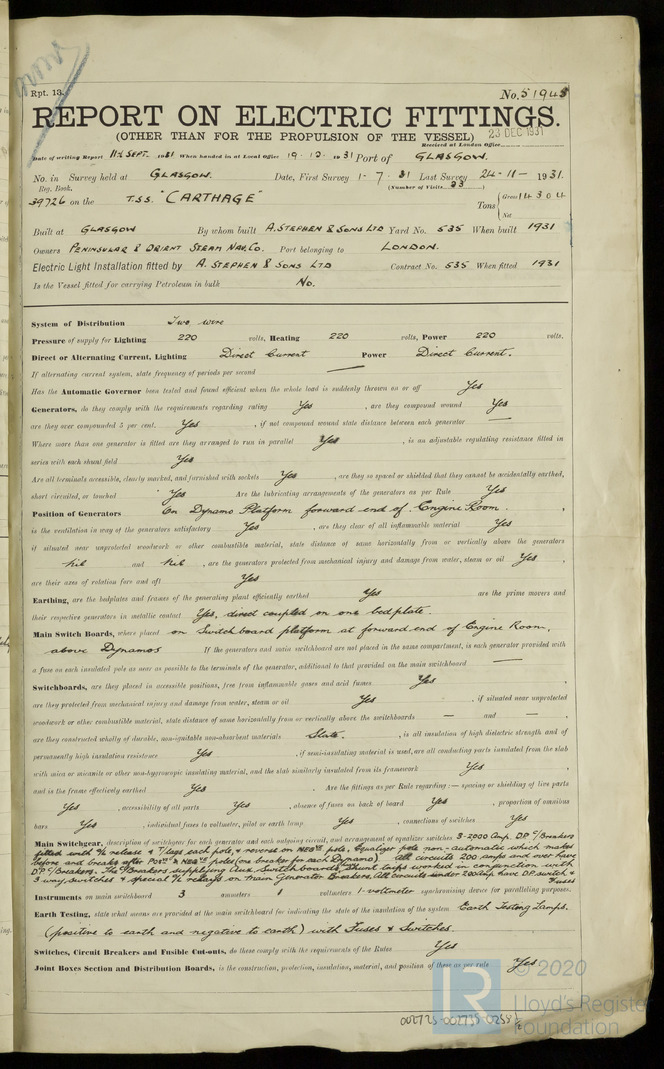 Rpt. 13.
No. 51945
REPORT ON ELECTRIC FITTINGS.
(OTHER THAN FOR THE PROPULSION OF THE VESSEL)
23 DEC 1931
Received at London Office
Date of writing Report 11th SEPT. 1931 When handed in at Local Office 19. 12. 1931 Port of GLASGOW.
No. in Survey held at GLASGOW. Date, First Survey 1-7.31 Last Survey 24-11-1931.
Reg. Book. (Number of Visits 23)
39726 on the T.S.S. "CARTHAGE" Tons { Gross 14304
Net
Built at GLASGOW By whom built A. STEPHEN & SONS LTD Yard No. 535 When built 1931
Owners PENINSULAR & ORIENT STEAM NAV. CO. Port belonging to LONDON.
Electric Light Installation fitted by A. STEPHEN & SONS LTD Contract No. 535 When fitted 1931
Is the Vessel fitted for carrying Petroleum in bulk No.
System of Distribution Two wire
Pressure of supply for Lighting 220 volts, Heating 220 volts, Power 220 volts.
Direct or Alternating Current, Lighting Direct Current Power Direct Current.
If alternating current system, state frequency of periods per second —
Has the Automatic Governor been tested and found efficient when the whole load is suddenly thrown on or off Yes
Generators, do they comply with the requirements regarding rating Yes, are they compound wound Yes
are they over compounded 5 per cent. Yes, if not compound wound state distance between each generator —
Where more than one generator is fitted are they arranged to run in parallel Yes, is an adjustable regulating resistance fitted in
series with each shunt field Yes
Are all terminals accessible, clearly marked, and furnished with sockets Yes, are they so spaced or shielded that they cannot be accidentally earthed,
short circuited, or touched Yes Are the lubricating arrangements of the generators as per Rule Yes
Position of Generators On Dynamo Platform forward end of Engine Room.,
is the ventilation in way of the generators satisfactory Yes, are they clear of all inflammable material Yes
if situated near unprotected woodwork or other combustible material, state distance of same horizontally from or vertically above the generators
Nil and Nil, are the generators protected from mechanical injury and damage from water, steam or oil Yes,
are their axes of rotation fore and aft Yes
Earthing, are the bedplates and frames of the generating plant efficiently earthed Yes are the prime movers and
their respective generators in metallic contact Yes, direct coupled on one bedplate.
Main Switch Boards, where placed on Switchboard platform at forward end of Engine Room,
above Dynamos If the generators and main switchboard are not placed in the same compartment, is each generator provided with
a fuse on each insulated pole as near as possible to the terminals of the generator, additional to that provided on the main switchboard —
Switchboards, are they placed in accessible positions, free from inflammable gases and acid fumes Yes,
are they protected from mechanical injury and damage from water, steam or oil Yes, if situated near unprotected
woodwork or other combustible material, state distance of same horizontally from or vertically above the switchboards — and —,
are they constructed wholly of durable, non-ignitable non-absorbent materials Slate., is all insulation of high dielectric strength and of
permanently high insulation resistance Yes, if semi-insulating material is used, are all conducting parts insulated from the slab
with mica or micanite or other non-hygroscopic insulating material, and the slab similarly insulated from its framework Yes,
and is the frame effectively earthed Yes Are the fittings as per Rule regarding:— spacing or shielding of live parts
Yes, accessibility of all parts Yes, absence of fuses on back of board Yes, proportion of omnibus
bars Yes, individual fuses to voltmeter, pilot or earth lamp Yes, connections of switches Yes
Main Switchgear, description of switchgear for each generator and each outgoing circuit, and arrangement of equalizer switches 3-2000 Amp. D.P. C/Breakers
fitted with O/L release & T/lags each pole, & reverse on NEGve pole. Equalizer pole non-automatic which makes
before and breaks after POSve & NEGve poles (one breaker for each Dynamo). All circuits 200 amps and over have
D.P. C/Breakers. The C/Breakers supplying Aux. Switchboards Shunt trips worked in conjunction with
3 way switches & special O/L relays on Main Generator Breakers, All circuits under 200 Amp have D.P. switch &
Fuses
Instruments on main switchboard 3 ammeters 1 voltmeters 1-voltmeter synchronising device for paralleling purposes.
Earth Testing, state what means are provided at the main switchboard for indicating the state of the insulation of the system Earth Testing Lamps.
(positive to earth and negative to earth) with Fuses & Switches.
Switches, Circuit Breakers and Fusible Cut-outs, do these comply with the requirements of the Rules Yes
Joint Boxes Section and Distribution Boards, is the construction, protection, insulation, material, and position of these as per rule Yes
© 2020
LR
Lloyd's Register
Foundation
002725-002735-0258 1/2